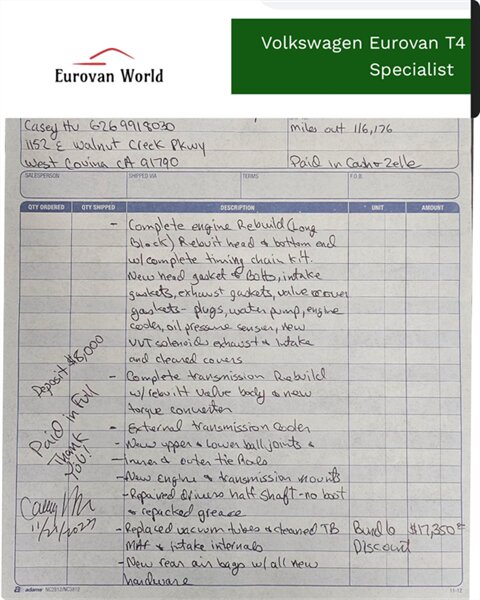 Eurovan World
Volkswagen Eurovan T4
Specialist
Casey Hu 6269918030
miles out 116,176
1152 E Walnut Creek Pkwy
West Covina CA 91790
Paid in Cash & Zelle
SALESPERSON
SHIPPED VIA
TERMS
F.O.B.
QTY ORDERED
QTY SHIPPED
DESCRIPTION
UNIT
AMOUNT
- Complete engine Rebuild (Long
Block) Rebuit head & bottom end
w/ complete timing chain kit.
New head gasket & Bolts, intake
gaskets, exhaust gaskets, valve cover
gaskets - plugs, water pump, engine
cooler, oil pressure sensor, new
VVT solenoids exhaust & Intake
and cleaned covers
- Complete transmission Rebuild
w/ rebuilt valve body & new
torque converter
- External transmission Cooler
- New upper & Lower ball joints &
- Inner & outer tie Rods
- New engine & transmission mounts
- Repaired drivers half shaft - no boot
& repacked grease
- Replaced vacuum tubes & cleaned TB
MAF & intake internals
Bundle
Discount
$17,350
- New rear air bags w/ all new
hardware
Deposit $8,000
Paid in Full
Thank
You!
adams NC2812/NC3812
11-12